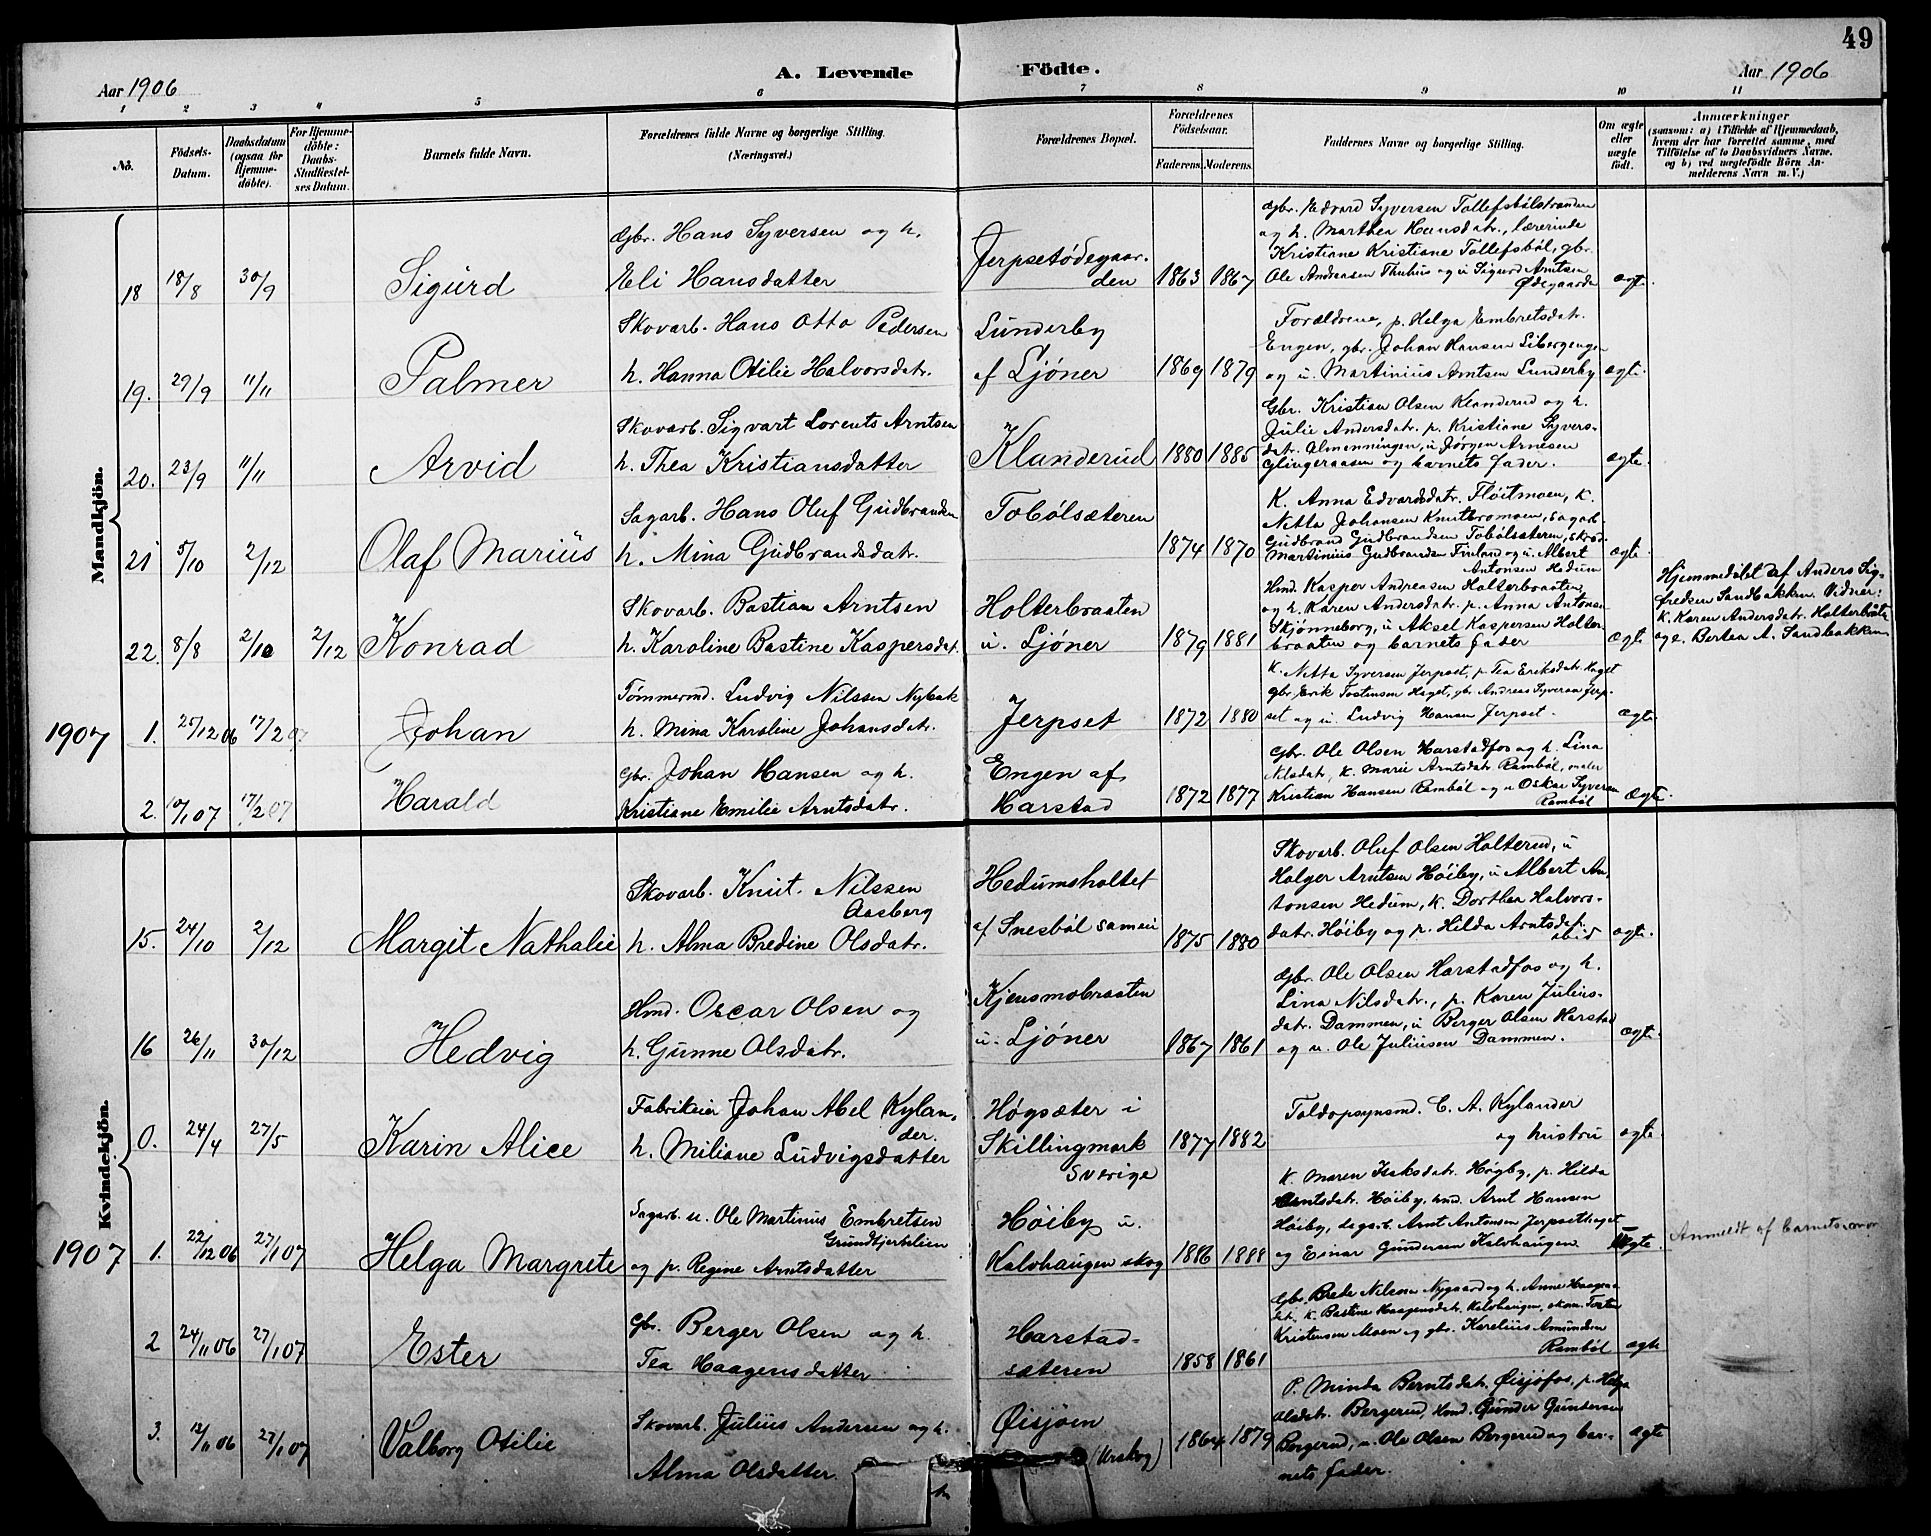 49
Aar 1906
A. Levende Födte.
Aar 1906
1 2 3 4 5 6 7 8 9 10 11
No.
Födsels-Datum.
Daabsdatum (ogsaa for Hjemme-döbte).
For Hjemme-döbte: Daabs-Stadfæstel-ses Datum.
Barnets fulde Navn.
Forældrenes fulde Navne og borgerlige Stilling. (Næringsvei.)
Forældrenes Bopæl.
Forældrenes Födselsaar.
Faderens. Moderens.
Faddernes Navne og borgerlige Stilling.
Om ægte eller uægte födt.
Anmærkninger
(saasom: a) i Tilfælde af Hjemmedaab,
hvem der har forrettet samme, med
Tilföielse af to Daabsvidners Navne.
og b) ved uægtefödte Börn An-
melderens Navn m. V.)
Mandkjön.
18 18/8 30/9 Sigurd
Gbr. Hans Syversen og h.
Eli Hansdatter
Jerpsetødegaar-
den
1863 1867
Gbr. Edvard Syversen Tollefsbølstranden
og h. Marthea Hansdatr., lærerinde
Kristiane Kristiane Tollefsbøl, gbr.
Ole Andreasen Thuhus og u Sigurd Arntsen
Ødegaarden
ægte.
19. 29/9 11/11 Palmer
Skovarb. Hans Otto Pedersen
h. Hanna Otilie Halvorsdatr.
Lunderby
af Ljøner
1869 1879
Forældrene, p. Helga Embretsdatr.
Engen, gbr. Johan Hansen Libergengen
og u. Martinius Arntsen Lunderby
ægte.
20. 23/9 11/11 Arvid
Skovarb. Sigvart Lorents Arntsen
h. Thea Kristiansdatter
Klanderud
1880 1885
Gbr. Kristian Olsen Klanderud og h.
Julie Andersdatr. p. Kristiane Syvers-
datr. Almenningen, u Jørgen Arnesen
Glingeraasen og barnets fader.
ægte.
21 5/10 2/12 Olaf Marius
Sagarb. Hans Oluf Gudbrandsen
h. Mina Gudbrandsdatr.
Tobølsæteren
1874 1870
K. Anna Edvardsdatr. Fløitmoen, K.
Netta Johansen Knutbromoen, sagarb.
Gudbrand Gudbrandsen Tobølsæteren,
Martinius Gudbrandsen Finland og u. Albert
Antonsen Hedum
ægte.
22. 8/8 2/10 2/12 Konrad
Skovarb. Bastian Arntsen
h. Karoline Bastine Kaspersdat.
Holterbraaten
u. Ljøner
1879 1881
Hmd. Kasper Andreasen Holterbraaten,
og h. Karen Andersdatr. p. Anna Antons-
Skjønneborg, u Aksel Kaspersen Holter-
braaten og barnets fader
ægte
Hjemmedøbt af Anders Sig-
fredsen Sandbakken Vidner:
K. Karen Andersdatr. Holterbråte
og p. Bertea A. Sandbakken
1907 1. 25/12 06 17/2 07 Johan
Tømmermd. Ludvig Nilssen Nybak
h. Mina Karoline Johansdatr.
Jerpset
1872 1880
K. Netta Syversen Jerpset, p. Tea Eriksdatr. Haget
gbr. Erik Tostensen Haget, gbr Andreas Syversen Jerp-
set og u. Ludvig Hansen Jerpset.
ægte.
2. 10/1 07 17/2 07 Harald
Gbr. Johan Hansen og h.
Kristiane Emilie Arntsdatr.
Engen af
Harstad
1872 1877
Gbr. Ole Olsen Harstadfos og h. Lina
Nilsdatr, K. Marie Arntsdatr Rambøl, maler
Kristian Hansen Rambøl og u Oskar Syversen
Rambøl
Ægte.
Kvindekjön.
15. 24/10 2/12 Margit Nathalie
Skovarb. Knut. Nilssen
Aasberg
h. Alma Bredine Olsdatr.
Hedumsholtet
af Snesbøl sameie
1875 1880
Skovarb. Oluf Olsen Holterud, u
Holger Arntsen Høiby, u Albert An-
tonsen Hedum, K. Dorthea Halvors-
datr. Høiby og p. Hilda Arntsdatr.
ibid
ægte.
16 26/11 30/12 Hedvig
Hmd. Oscar Olsen og
h. Gunne Olsdatr.
Kjensmobraaten
u. Ljøner
1867 1861
Gbr. Ole Olsen Harstadfos og h.
Lina Nilsdatr., p. Karen Julius-
datr. Dammen, u Berger Olsen Harstad
og u. Ole Juliusen Dammen.
ægte.
0. 24/4 27/5 Karin Alice
Fabrikeier Johan Abel Kylan-
der.
h. Miliane Ludvigsdatter
Høgsæter i
Skillingmark
Sverige
1877 1882
Toldopsynsmd. C. A. Kylander
og hustru
ægte.
1907 1. 22/12 06 27/1 07 Helga Margrete
Sagarb. u. Ole Martinus Embretsen
Grundtjernlien
og p. Regine Arntsdatter
Høiby u.
Kalvhaugen skog
1886 1888
K. Maren Isaksdatr. Høgby, p. Hilda
Arntsdatr. Høiby, hmd. Arnt Hansen
Høiby, sagarb. Arnt Antonsen Jerpsethaget
og Einar Gundersen Kalvhaugen
Uægte.
Anmeldt af barnets mor
2 24/11 06 27/1 07 Ester
Gbr. Berger Olsen og h.
Tea Haagensdatter
Harstad-
sæteren
1858 1861
Gbr. Brede Nilssen Nygaard og h. Anne Haagens-
datr, K. Bastine Haagensdatr. Kalvhaugen, skom. Tosten
Kristensen Moen og gbr. Karelius Amundsen
Rambøl
ægte
3. 12/11 06 27/1 07 Valborg Otilie
Skovarb. Julius Andersen og h.
Alma Olsdatter
Øisjøen
(Urskog)
1864 1879
P. Minda Berntsdatr. Øisjøfos, p. Helga
Olsdatr. Bergerud, Hmd. Gunder Gundersen
Bergerud, u. Ole Olsen Bergerud og bar-
nets fader.
ægte